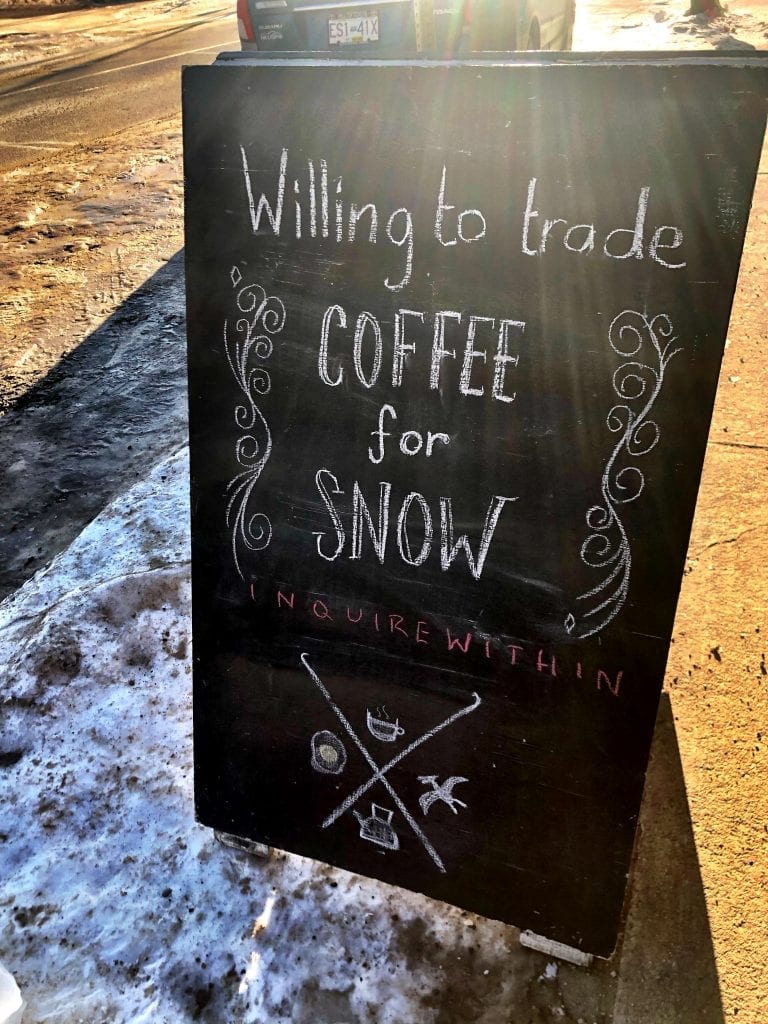 ES1 41X
SUBARU
Willing to trade
COFFEE
for
SNOW
INQUIRE WITHIN